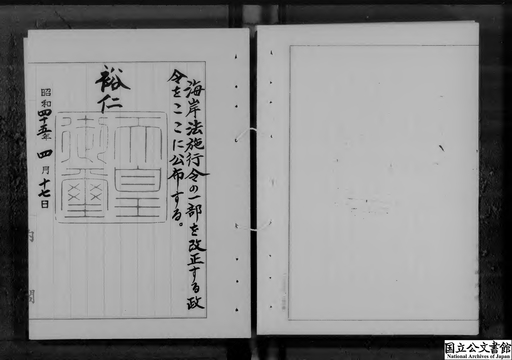 海岸法施行令の一部を改正する政
令をここに公布する。
裕仁
天皇
御璽
昭和四十五年四月十七日
内閣
国立公文書館
National Archives of Japan